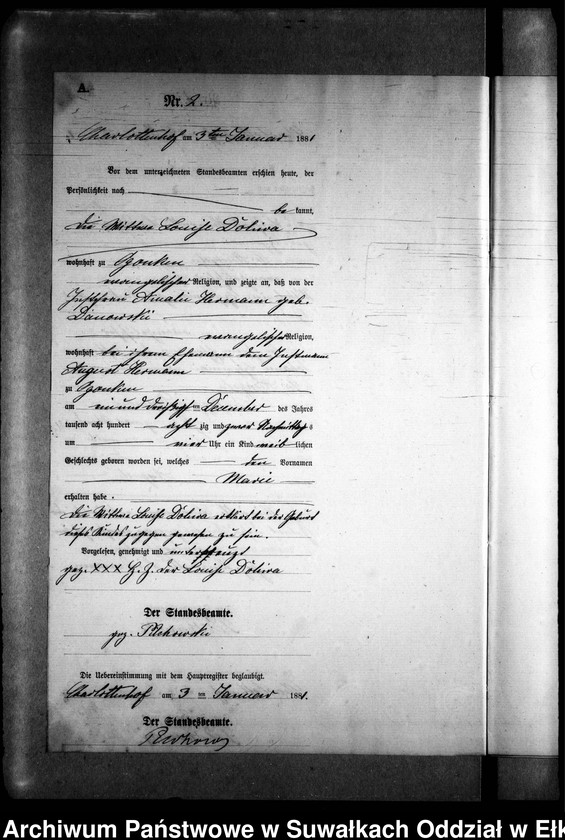 A.
Nr. 2.
Charlottenhof am 3ten Januar 1881
Vor dem unterzeichneten Standesbeamten erschien heute, der
Persönlichkeit nach
be kannt,
die Wittwe Louise Doliwa
wohnhaft zu Czonken
evangelischer Religion, und zeigte an, daß von der
Instfrau Amalie Hermann geb.
Danowski
evangelischer Religion,
wohnhaft bei ihrem Ehemann dem Instmann
August Hermann
zu Czonken
am ein und dreißigsten Dezember des Jahres
tausend acht hundert acht zig und zwar Nachmittags
um vier Uhr ein Kind weib lichen
Geschlechts geboren worden sei, welches den Vornamen
Marie
erhalten habe.
Die Wittwe Louise Doliwa erklärt bei der Geburt
dieses Kindes zugegen gewesen zu sein.
Vorgelesen, genehmigt und unterkreuzt
gez. XXX H. Z. der Louise Doliwa
Der Standesbeamte.
gez.
Die Uebereinstimmung mit dem Hauptregister beglaubigt.
Charlottenhof am 3 ten Januar 1881.
Der Standesbeamte.
Archiwum Państwowe w Suwałkach Oddział w Ełk